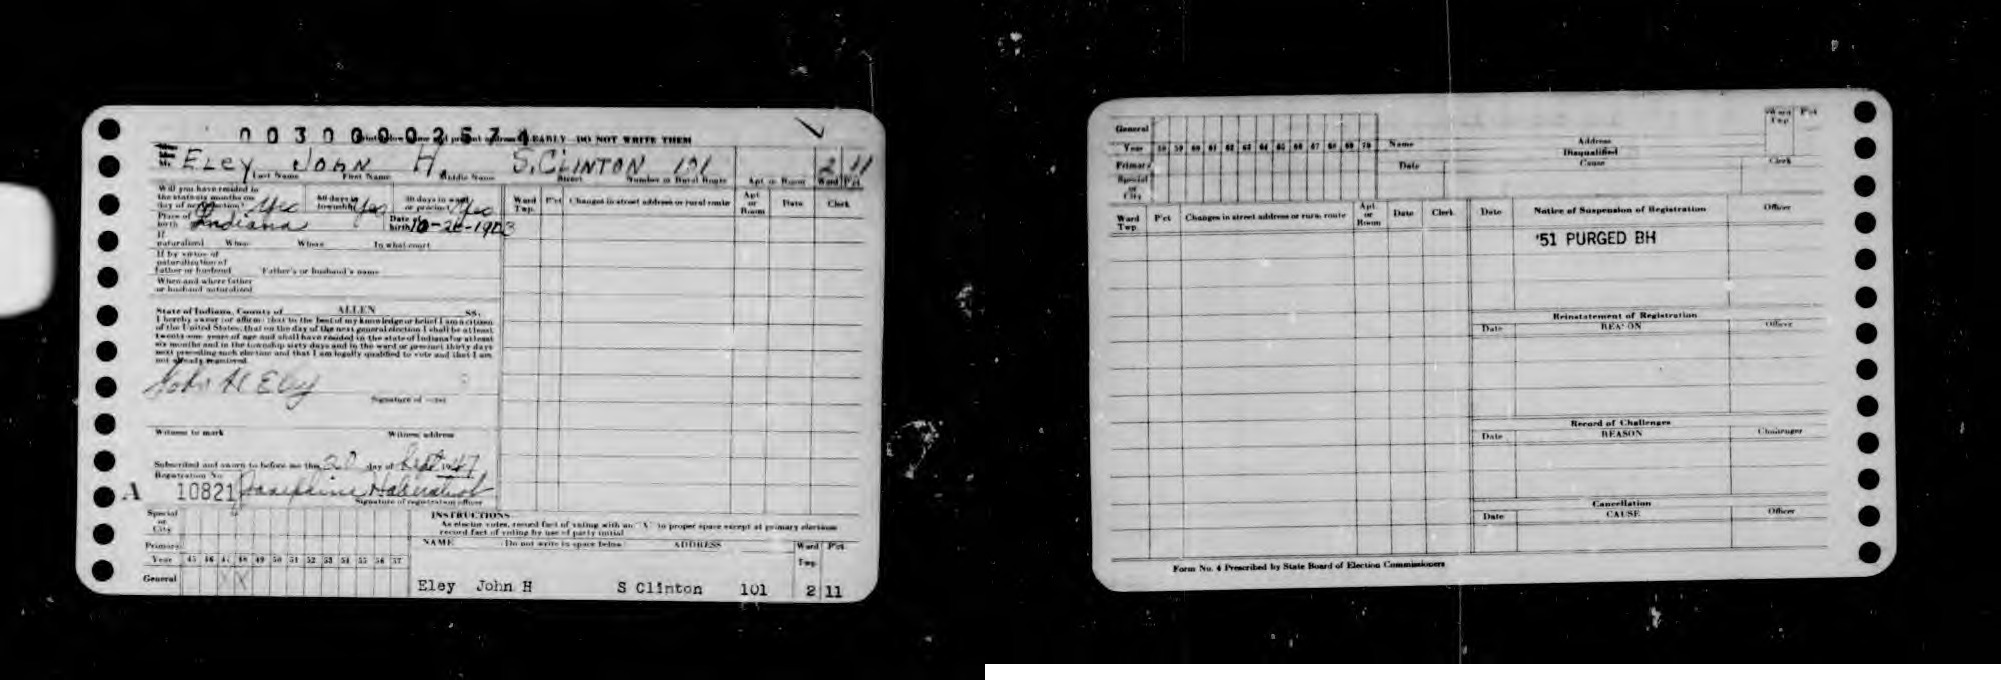 00300002574
EARLY DO NOT WRITE THEM
Mr. Eley John H. S. CLINTON 101 2 11
Last Name First Name Middle Name Street Number or Rural Route Apt. or Room Ward P'ct
Will you have resided in
the state six months on
day of next election? Yes 60 days in township Yes 30 days in ward or precinct Yes
Place of birth Indiana Date of birth
If naturalized When Where In what court
If by virtue of
naturalization of
father or husband Father's or husband's name
When and where father
or husband naturalized
State of Indiana, County of ALLEN SS.
I hereby swear (or affirm) that to the best of my knowledge or belief I am a citizen
of the United States, that on the day of the next general election I shall be at least
twenty-one years of age and shall have resided in the state of Indiana for at least
six months and in the township sixty days and in the ward or precinct thirty days
next preceding such election and that I am legally qualified to vote and that I am
not already registered.
John H Eley
Signature of voter
Witness to mark Witness address
Subscribed and sworn to before me this 20 day of Sept 1947
Registration No.
A 10821 Josephine
Signature of registration officer
Ward Twp. P'ct Changes in street address or rural route Apt. or Room Date Clerk
Special
or
City
Primary
Year 45 46 47 48 49 50 51 52 53 54 55 56 57
General X X
INSTRUCTIONS
As elector votes, record fact of voting with an "X" in proper space except at primary elections
record fact of voting by use of party initial
NAME Do not write in space below ADDRESS Ward Twp. P'ct
Eley John H S Clinton 101 2 11
General
Year 58 59 60 61 62 63 64 65 66 67 68 69 70
Primary
Special
or
City
Name Address Ward Twp P'ct
Disqualified
Date Cause Clerk
Ward Twp. P'ct Changes in street address or rural route Apt. or Room Date Clerk
Date Notice of Suspension of Registration Officer
'51 PURGED BH
Reinstatement of Registration
Date REASON Officer
Record of Challenges
Date REASON Challenger
Cancellation
Date CAUSE Officer
Form No. 4 Prescribed by State Board of Election Commissioners